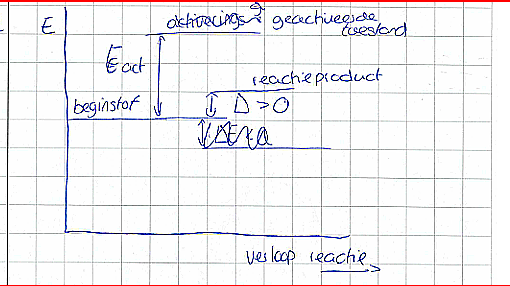 E
activerings geactiveerde
toestand
Eact
reactieproduct
beginstof
Δ >0
verloop reactie